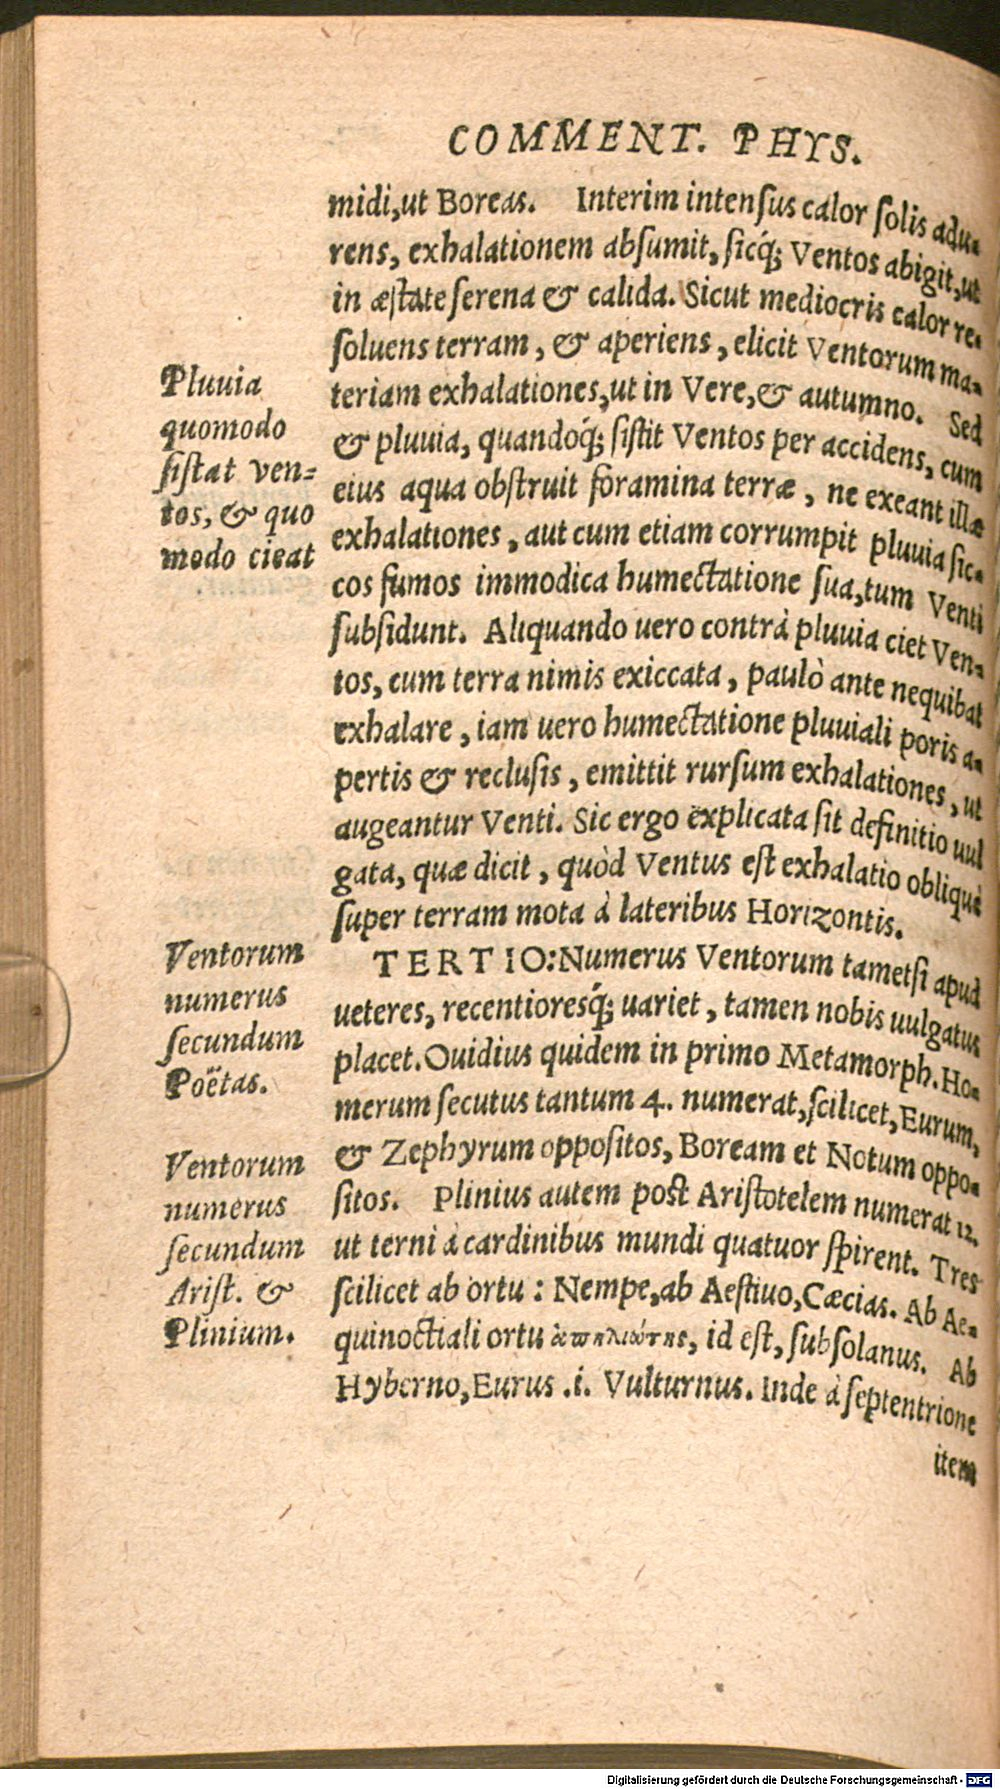 COMMENT. PHYS.
midi,ut Boreas. Interim intenſus calor ſolis adu-
rens, exhalationem abſumit, ſicq́; Ventos abigit,ut
in æſtate ſerena & calida. Sicut mediocris calor re-
ſoluens terram, & aperiens, elicit Ventorum ma-
teriam exhalationes,ut in Vere,& autumno. Sed
& pluuia, quandoq́; ſiſtit Ventos per accidens, cum
eius aqua obſtruit foramina terræ, ne exeant illæ
exhalationes, aut cum etiam corrumpit pluuia ſic-
cos fumos immodica humectatione ſua,tum Venti
ſubſidunt. Aliquando uero contrà pluuia ciet Ven-
tos, cum terra nimis exiccata, paulò ante nequibat
exhalare, iam uero humectatione pluuiali poris a-
pertis & recluſis, emittit rurſum exhalationes, ut
augeantur Venti. Sic ergo explicata ſit definitio uul
gata, quæ dicit, quòd Ventus eſt exhalatio obliquè
ſuper terram mota à lateribus Horizontis.
TERTIO: Numerus Ventorum tametſi apud
ueteres, recentioresq́; uariet, tamen nobis uulgatus
placet. Ouidius quidem in primo Metamorph. Ho-
merum ſecutus tantum 4. numerat,ſcilicet,Eurum,
& Zephyrum oppoſitos, Boream et Notum oppo-
ſitos. Plinius autem poſt Ariſtotelem numerat 12.
ut terni à cardinibus mundi quatuor ſpirent. Tres
ſcilicet ab ortu : Nempe,ab Aeſtiuo,Cæcias. Ab Ae-
quinoctiali ortu ἀπηλιώτης, id eſt, ſubſolanus. Ab
Hyberno,Eurus .i. Vulturnus. Inde à ſeptentrione
item
Pluuia
quomodo
ſiſtat ven=
tos, & quo
modo cieat
Ventorum
numerus
ſecundum
Poëtas.
Ventorum
numerus
ſecundum
Ariſt. &
Plinium.
Digitalisierung gefördert durch die Deutsche Forschungsgemeinschaft - DFG